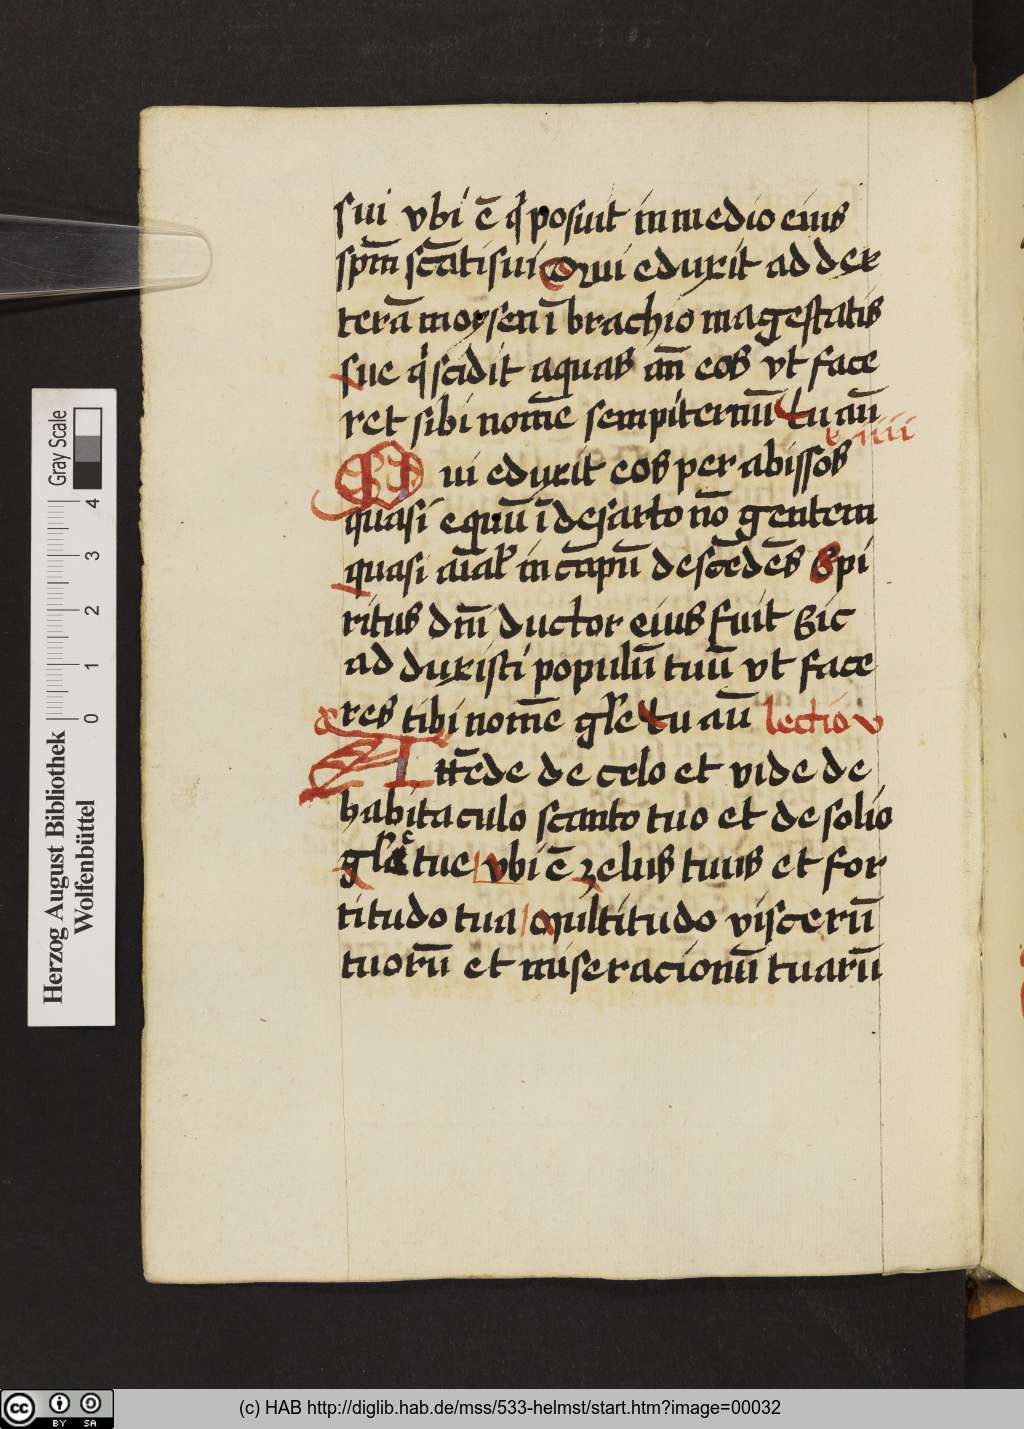 sui vbi ē q̇ posuit in medio eius
spm̄ scātisui Qui eduxit ad dex
terā moysen ī brachio magestatis
sue q̇ scidit aquas an̄ eos vt face
ret sibi nom̄e sempiternū tu aū
l iiii
Qui eduxit eos per abissos
quasi equū ī desarto nō gentem
quasi aīal in cāpū desc̄edēs Spi
ritus dm̄ ductor eius fuit Sic
ad duxisti populū tuū vt face
res tibi nom̄e gl̄e tu aū lectio v
Att̄ede de celo et vide de
habitaculo scanto tuo et de solio
gl̄e tue vbi ē zelus tuus et for
titudo tua Multitudo viscerū
tuorū et miseracionū tuarū
Herzog August Bibliothek
Wolfenbüttel
0 1 2 3 4 Gray Scale
cc BY SA
(c) HAB http://diglib.hab.de/mss/533-helmst/start.htm?image=00032